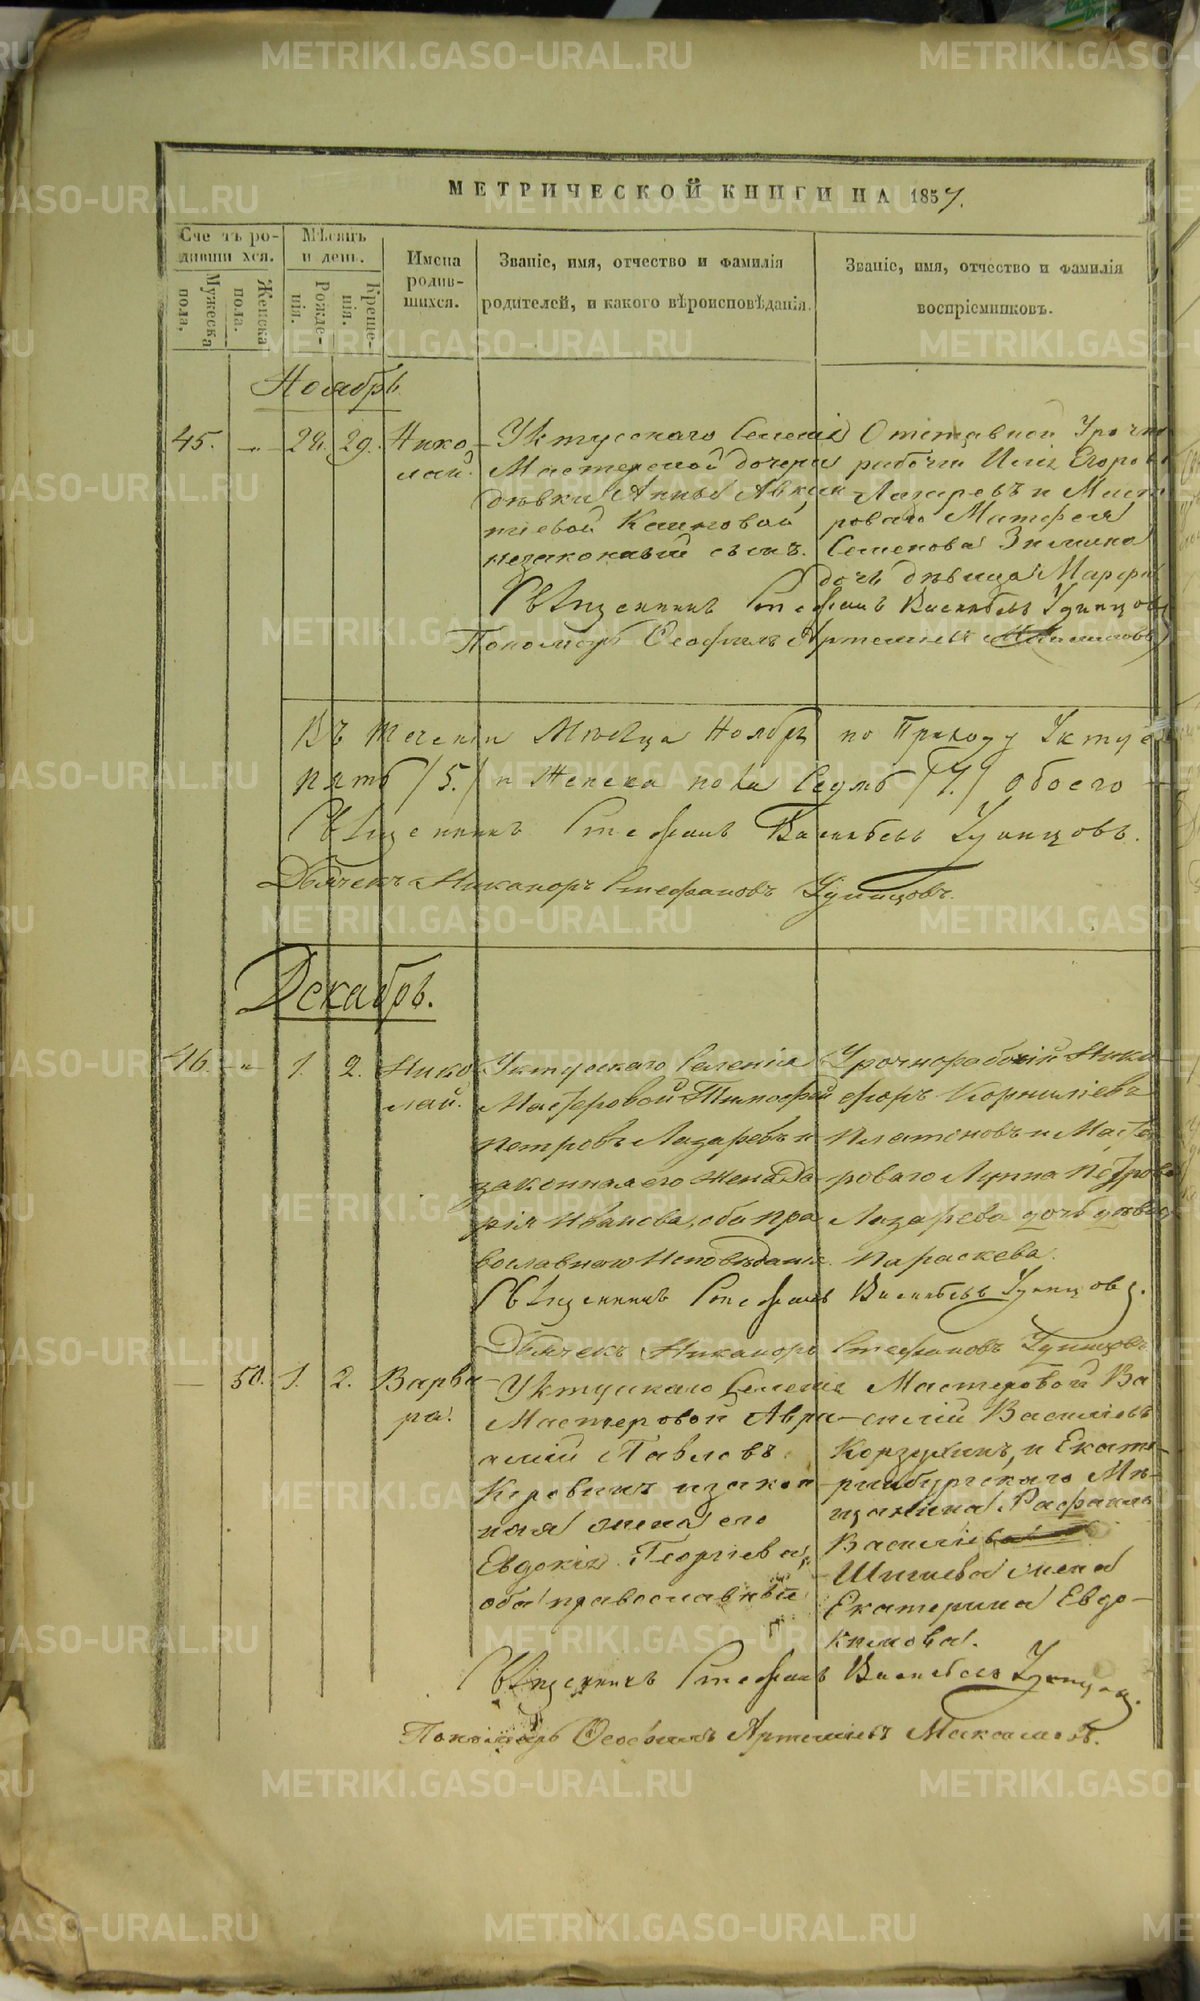 МЕТРИЧЕСКОЙ КНИГИ НА 1857.
Счетъ родившихся.
Мужеска пола.
Женска пола.
Мѣсяцъ и день.
Рожденія.
Крещенія.
Имена родившихся.
Званіе, имя, отчество и фамилія
родителей, и какого вѣроисповѣданія.
Званіе, имя, отчество и фамилія
воспріемниковъ.
Ноябрь
45. " 28. 29. Нико
лай.
Уктусскаго Селенія
Мастерской дочери
дѣвки Анны
незаконный сынъ.
Отставной Урочно
рабочій Илія Егоровъ
Лазаревъ и Масте
роваго Матфея
Семенова Зимина
дочь дѣвица Марфа
Священникъ Стефанъ Васильевъ Удинцовъ
Пономарь Феофилъ Артемьевъ
Въ теченіи Мѣсяца Ноября по Приходу
пять /5./ и Женска пола Седмь /7./ обоего
Священникъ Стефанъ Васильевъ Удинцовъ.
Дьячекъ Никаноръ Стефановъ Удинцовъ.
Декабрь.
46. " 1. 2. Нико
лай.
Уктусскаго Селенія
Мастеровой Тимофей
Петровъ Лазаревъ и
законная его Жена Да
рія Иванова, оба пра
вославнаго Исповѣданія.
Урочнорабочій Ники
форъ Корниліевъ
Платоновъ и Масте
роваго Петрова
Лазарева дочь дѣвица
Параскева.
Священникъ Стефанъ Васильевъ Удинцовъ.
Дьячекъ Никаноръ Стефановъ Удинцовъ
— 50. 1. 2. Варва
ра.
Уктусскаго Селенія
Мастеровой Авра
амій Павловъ
и закон
ная жена его
Евдокія Георгіева,
оба православные
Мастеровой Ва
силій Васильевъ
Корзухинъ, и Екате
ринбургскаго Мѣ
щанина Рафаила
Васильева
жена
Екатерина Евдо
кимова.
Священникъ Стефанъ Васильевъ Удинцовъ.
Пономарь Феофилъ Артемьевъ Максимовъ.
METRIKI.GASO-URAL.RU